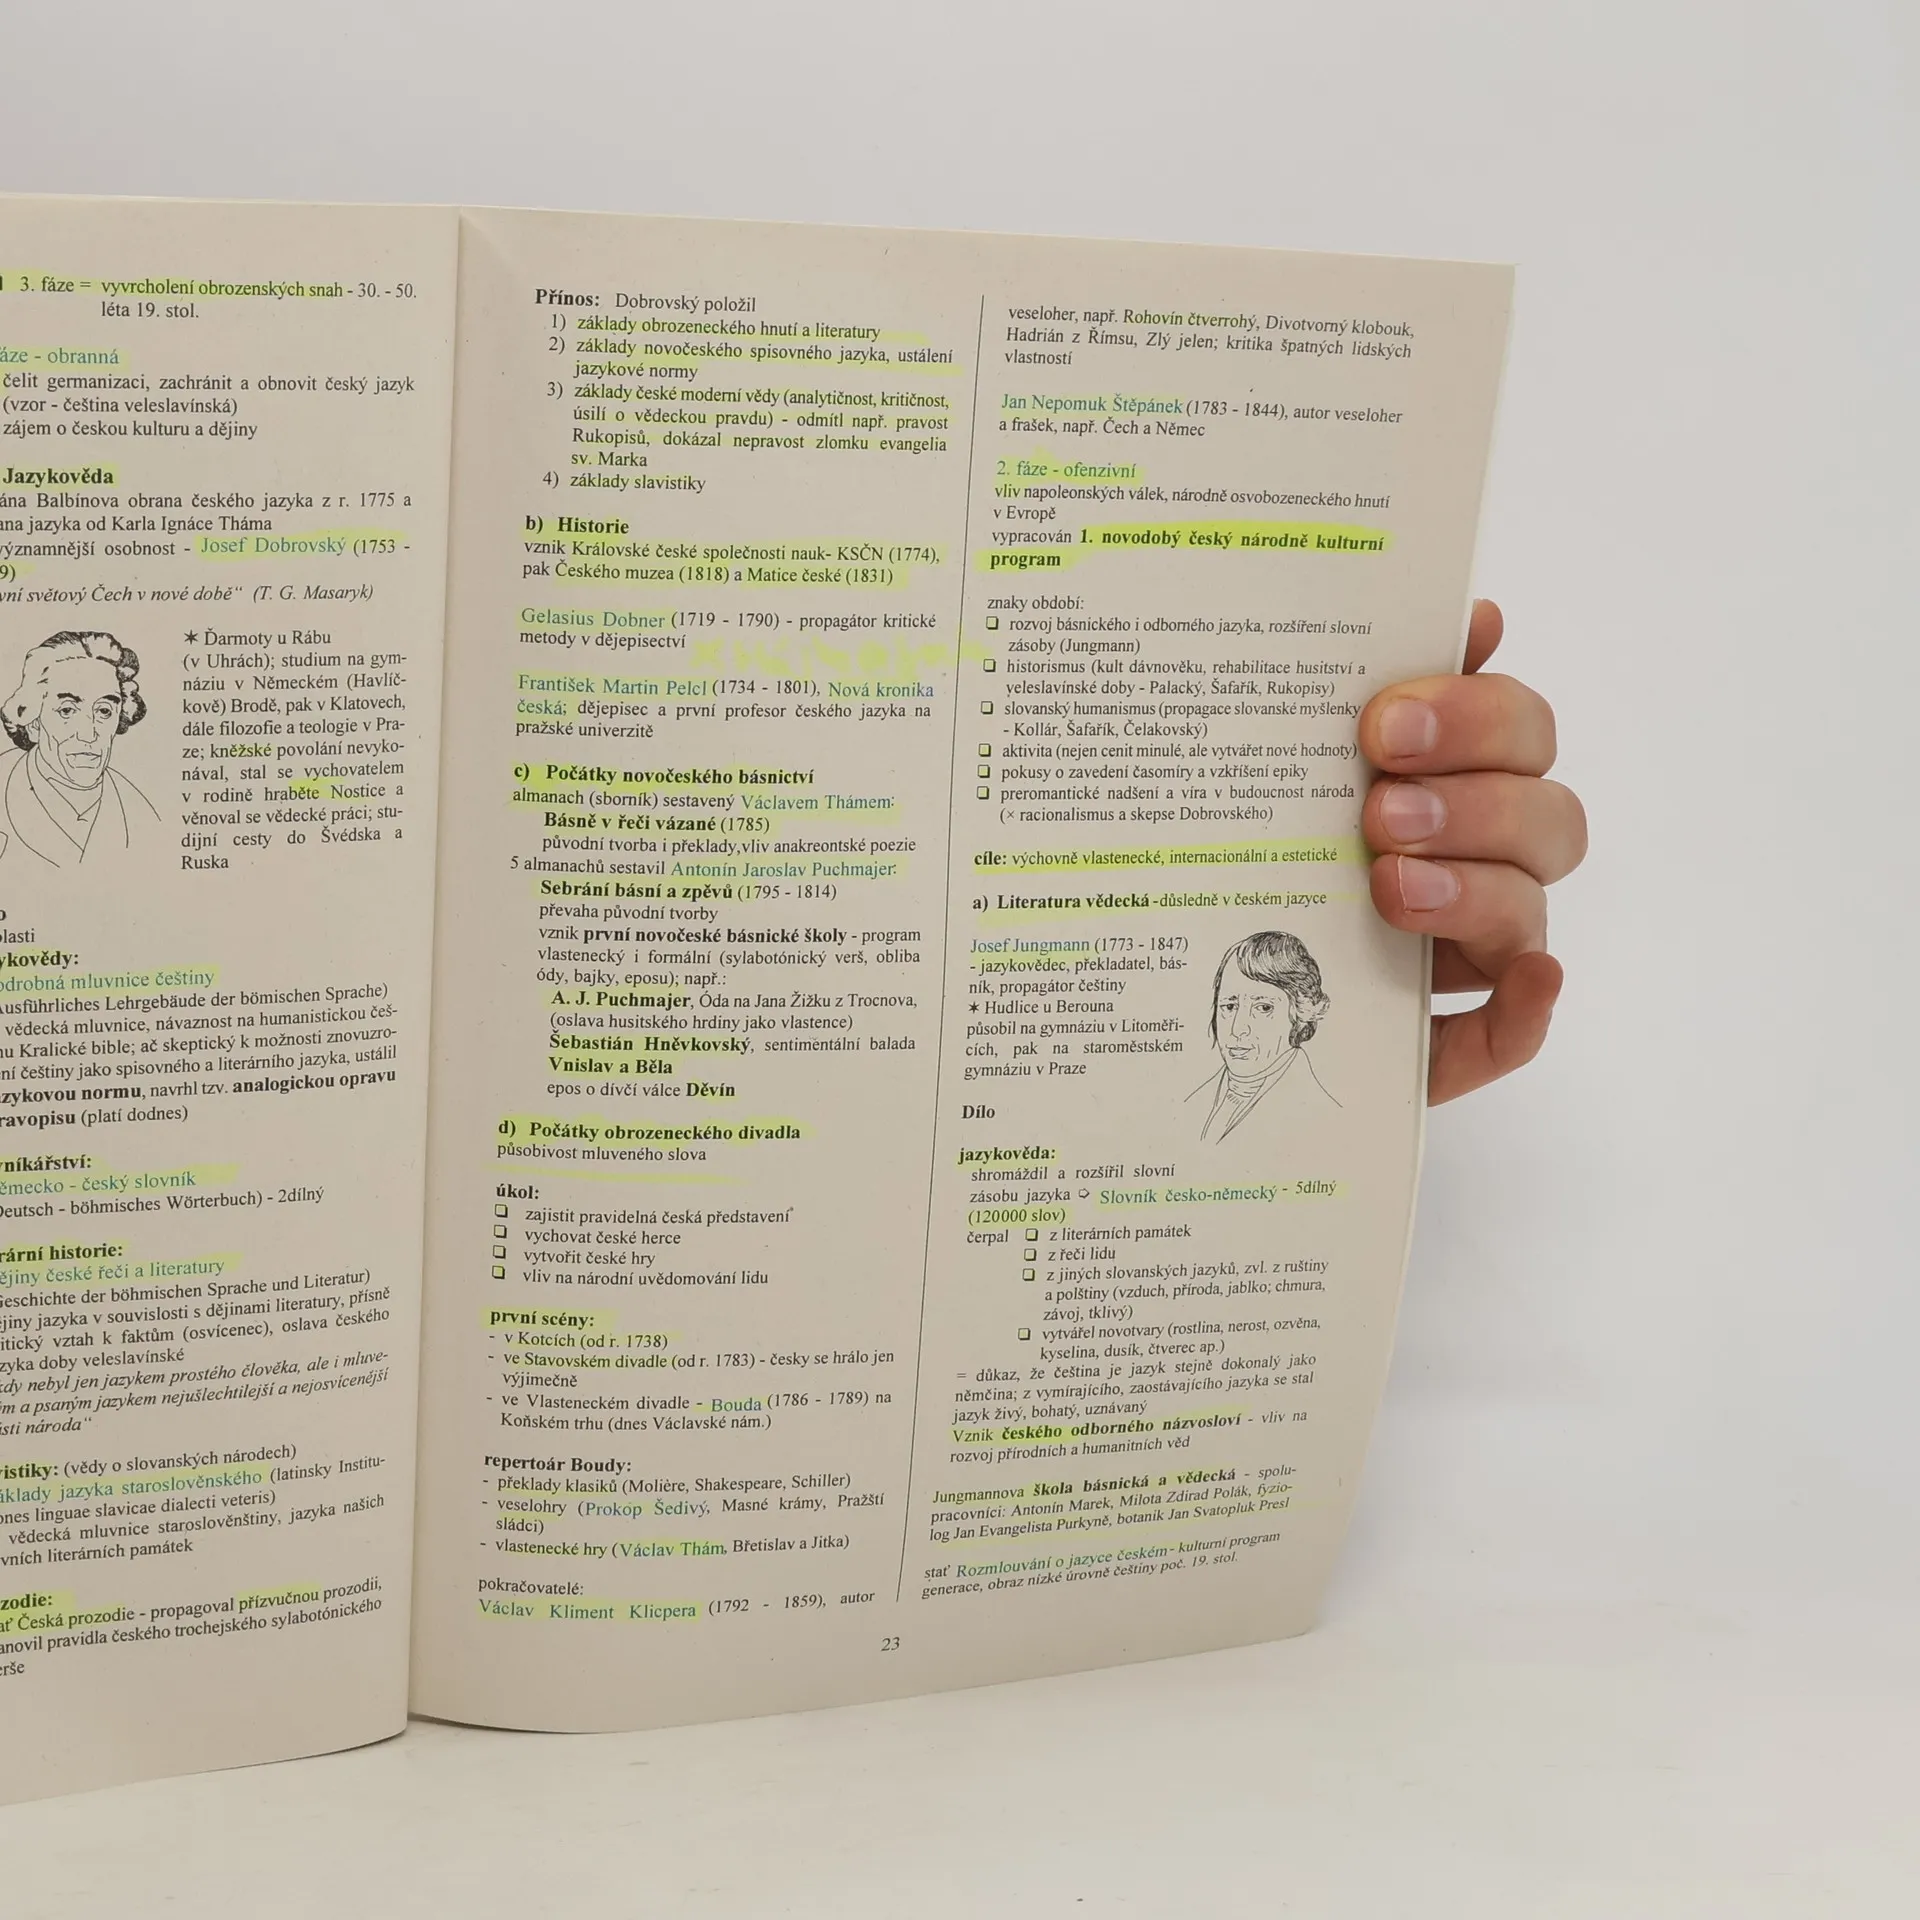 3. fáze = vyvrcholení obrozenských snah - 30. - 50.
léta 19. stol.
áze - obranná
čelit germanizaci, zachránit a obnovit český jazyk
(vzor - čeština veleslavínská)
zájem o českou kulturu a dějiny
Jazykověda
ána Balbínova obrana českého jazyka z r. 1775 a
ana jazyka od Karla Ignáce Tháma
významnější osobnost - Josef Dobrovský (1753 -
9)
vní světový Čech v nové době“ (T. G. Masaryk)
✶ Ďarmoty u Rábu
(v Uhrách); studium na gym-
náziu v Německém (Havlíč-
kově) Brodě, pak v Klatovech,
dále filozofie a teologie v Pra-
ze; kněžské povolání nevyko-
nával, stal se vychovatelem
v rodině hraběte Nostice a
věnoval se vědecké práci; stu-
dijní cesty do Švédska a
Ruska
o
lasti
ykovědy:
odrobná mluvnice češtiny
Ausführliches Lehrgebäude der bömischen Sprache)
vědecká mluvnice, návaznost na humanistickou češ-
nu Kralické bible; ač skeptický k možnosti znovuzro-
ní češtiny jako spisovného a literárního jazyka, ustálil
zykovou normu, navrhl tzv. analogickou opravu
ravopisu (platí dodnes)
níkářství:
ěmecko - český slovník
Deutsch - böhmisches Wörterbuch) - 2dílný
rární historie:
ějiny české řeči a literatury
Geschichte der böhmischen Sprache und Literatur)
ějiny jazyka v souvislosti s dějinami literatury, přísně
itický vztah k faktům (osvícenec), oslava českého
zyka doby veleslavínské
kdy nebyl jen jazykem prostého člověka, ale i mluve-
ým a psaným jazykem nejušlechtilejší a nejosvícenější
ásti národa“
istiky: (vědy o slovanských národech)
áklady jazyka staroslověnského (latinsky Institu-
ones linguae slavicae dialecti veteris)
vědecká mluvnice staroslověnštiny, jazyka našich
vních literárních památek
zodie:
ať Česká prozodie - propagoval přízvučnou prozodii,
anovil pravidla českého trochejského sylabotónického
erše
Přínos: Dobrovský položil
1) základy obrozeneckého hnutí a literatury
2) základy novočeského spisovného jazyka, ustálení
jazykové normy
3) základy české moderní vědy (analytičnost, kritičnost,
úsilí o vědeckou pravdu) - odmítl např. pravost
Rukopisů, dokázal nepravost zlomku evangelia
sv. Marka
4) základy slavistiky
b) Historie
vznik Královské české společnosti nauk- KSČN (1774),
pak Českého muzea (1818) a Matice české (1831)
Gelasius Dobner (1719 - 1790) - propagátor kritické
metody v dějepisectví
František Martin Pelcl (1734 - 1801), Nová kronika
česká; dějepisec a první profesor českého jazyka na
pražské univerzitě
c) Počátky novočeského básnictví
almanach (sborník) sestavený Václavem Thámem:
Básně v řeči vázané (1785)
původní tvorba i překlady,vliv anakreontské poezie
5 almanachů sestavil Antonín Jaroslav Puchmajer:
Sebrání básní a zpěvů (1795 - 1814)
převaha původní tvorby
vznik první novočeské básnické školy - program
vlastenecký i formální (sylabotónický verš, obliba
ódy, bajky, eposu); např.:
A. J. Puchmajer, Óda na Jana Žižku z Trocnova,
(oslava husitského hrdiny jako vlastence)
Šebastián Hněvkovský, sentimentální balada
Vnislav a Běla
epos o dívčí válce Děvín
d) Počátky obrozeneckého divadla
působivost mluveného slova
úkol:
❏ zajistit pravidelná česká představení
❏ vychovat české herce
❏ vytvořit české hry
❏ vliv na národní uvědomování lidu
první scény:
- v Kotcích (od r. 1738)
- ve Stavovském divadle (od r. 1783) - česky se hrálo jen
výjimečně
- ve Vlasteneckém divadle - Bouda (1786 - 1789) na
Koňském trhu (dnes Václavské nám.)
repertoár Boudy:
- překlady klasiků (Molière, Shakespeare, Schiller)
- veselohry (Prokop Šedivý, Masné krámy, Pražští
sládci)
- vlastenecké hry (Václav Thám, Břetislav a Jitka)
pokračovatelé:
Václav Kliment Klicpera (1792 - 1859), autor
veseloher, např. Rohovín čtverrohý, Divotvorný klobouk,
Hadrián z Římsu, Zlý jelen; kritika špatných lidských
vlastností
Jan Nepomuk Štěpánek (1783 - 1844), autor veseloher
a frašek, např. Čech a Němec
2. fáze - ofenzivní
vliv napoleonských válek, národně osvobozeneckého hnutí
v Evropě
vypracován 1. novodobý český národně kulturní
program
znaky období:
❏ rozvoj básnického i odborného jazyka, rozšíření slovní
zásoby (Jungmann)
❏ historismus (kult dávnověku, rehabilitace husitství a
veleslavínské doby - Palacký, Šafařík, Rukopisy)
❏ slovanský humanismus (propagace slovanské myšlenky
- Kollár, Šafařík, Čelakovský)
❏ aktivita (nejen cenit minulé, ale vytvářet nové hodnoty)
❏ pokusy o zavedení časomíry a vzkříšení epiky
❏ preromantické nadšení a víra v budoucnost národa
(× racionalismus a skepse Dobrovského)
cíle: výchovně vlastenecké, internacionální a estetické
a) Literatura vědecká -důsledně v českém jazyce
Josef Jungmann (1773 - 1847)
- jazykovědec, překladatel, bás-
ník, propagátor češtiny
✶ Hudlice u Berouna
působil na gymnáziu v Litoměři-
cích, pak na staroměstském
gymnáziu v Praze
Dílo
jazykověda:
shromáždil a rozšířil slovní
zásobu jazyka ➪ Slovník česko-německý - 5dílný
(120000 slov)
čerpal ❏ z literárních památek
❏ z řeči lidu
❏ z jiných slovanských jazyků, zvl. z ruštiny
a polštiny (vzduch, příroda, jablko; chmura,
závoj, tklivý)
❏ vytvářel novotvary (rostlina, nerost, ozvěna,
kyselina, dusík, čtverec ap.)
= důkaz, že čeština je jazyk stejně dokonalý jako
němčina; z vymírajícího, zaostávajícího jazyka se stal
jazyk živý, bohatý, uznávaný
Vznik českého odborného názvosloví - vliv na
rozvoj přírodních a humanitních věd
Jungmannova škola básnická a vědecká - spolu-
pracovníci: Antonín Marek, Milota Zdirad Polák, fyzio-
log Jan Evangelista Purkyně, botanik Jan Svatopluk Presl
stať Rozmlouvání o jazyce českém - kulturní program
generace, obraz nízké úrovně češtiny poč. 19. stol.
23